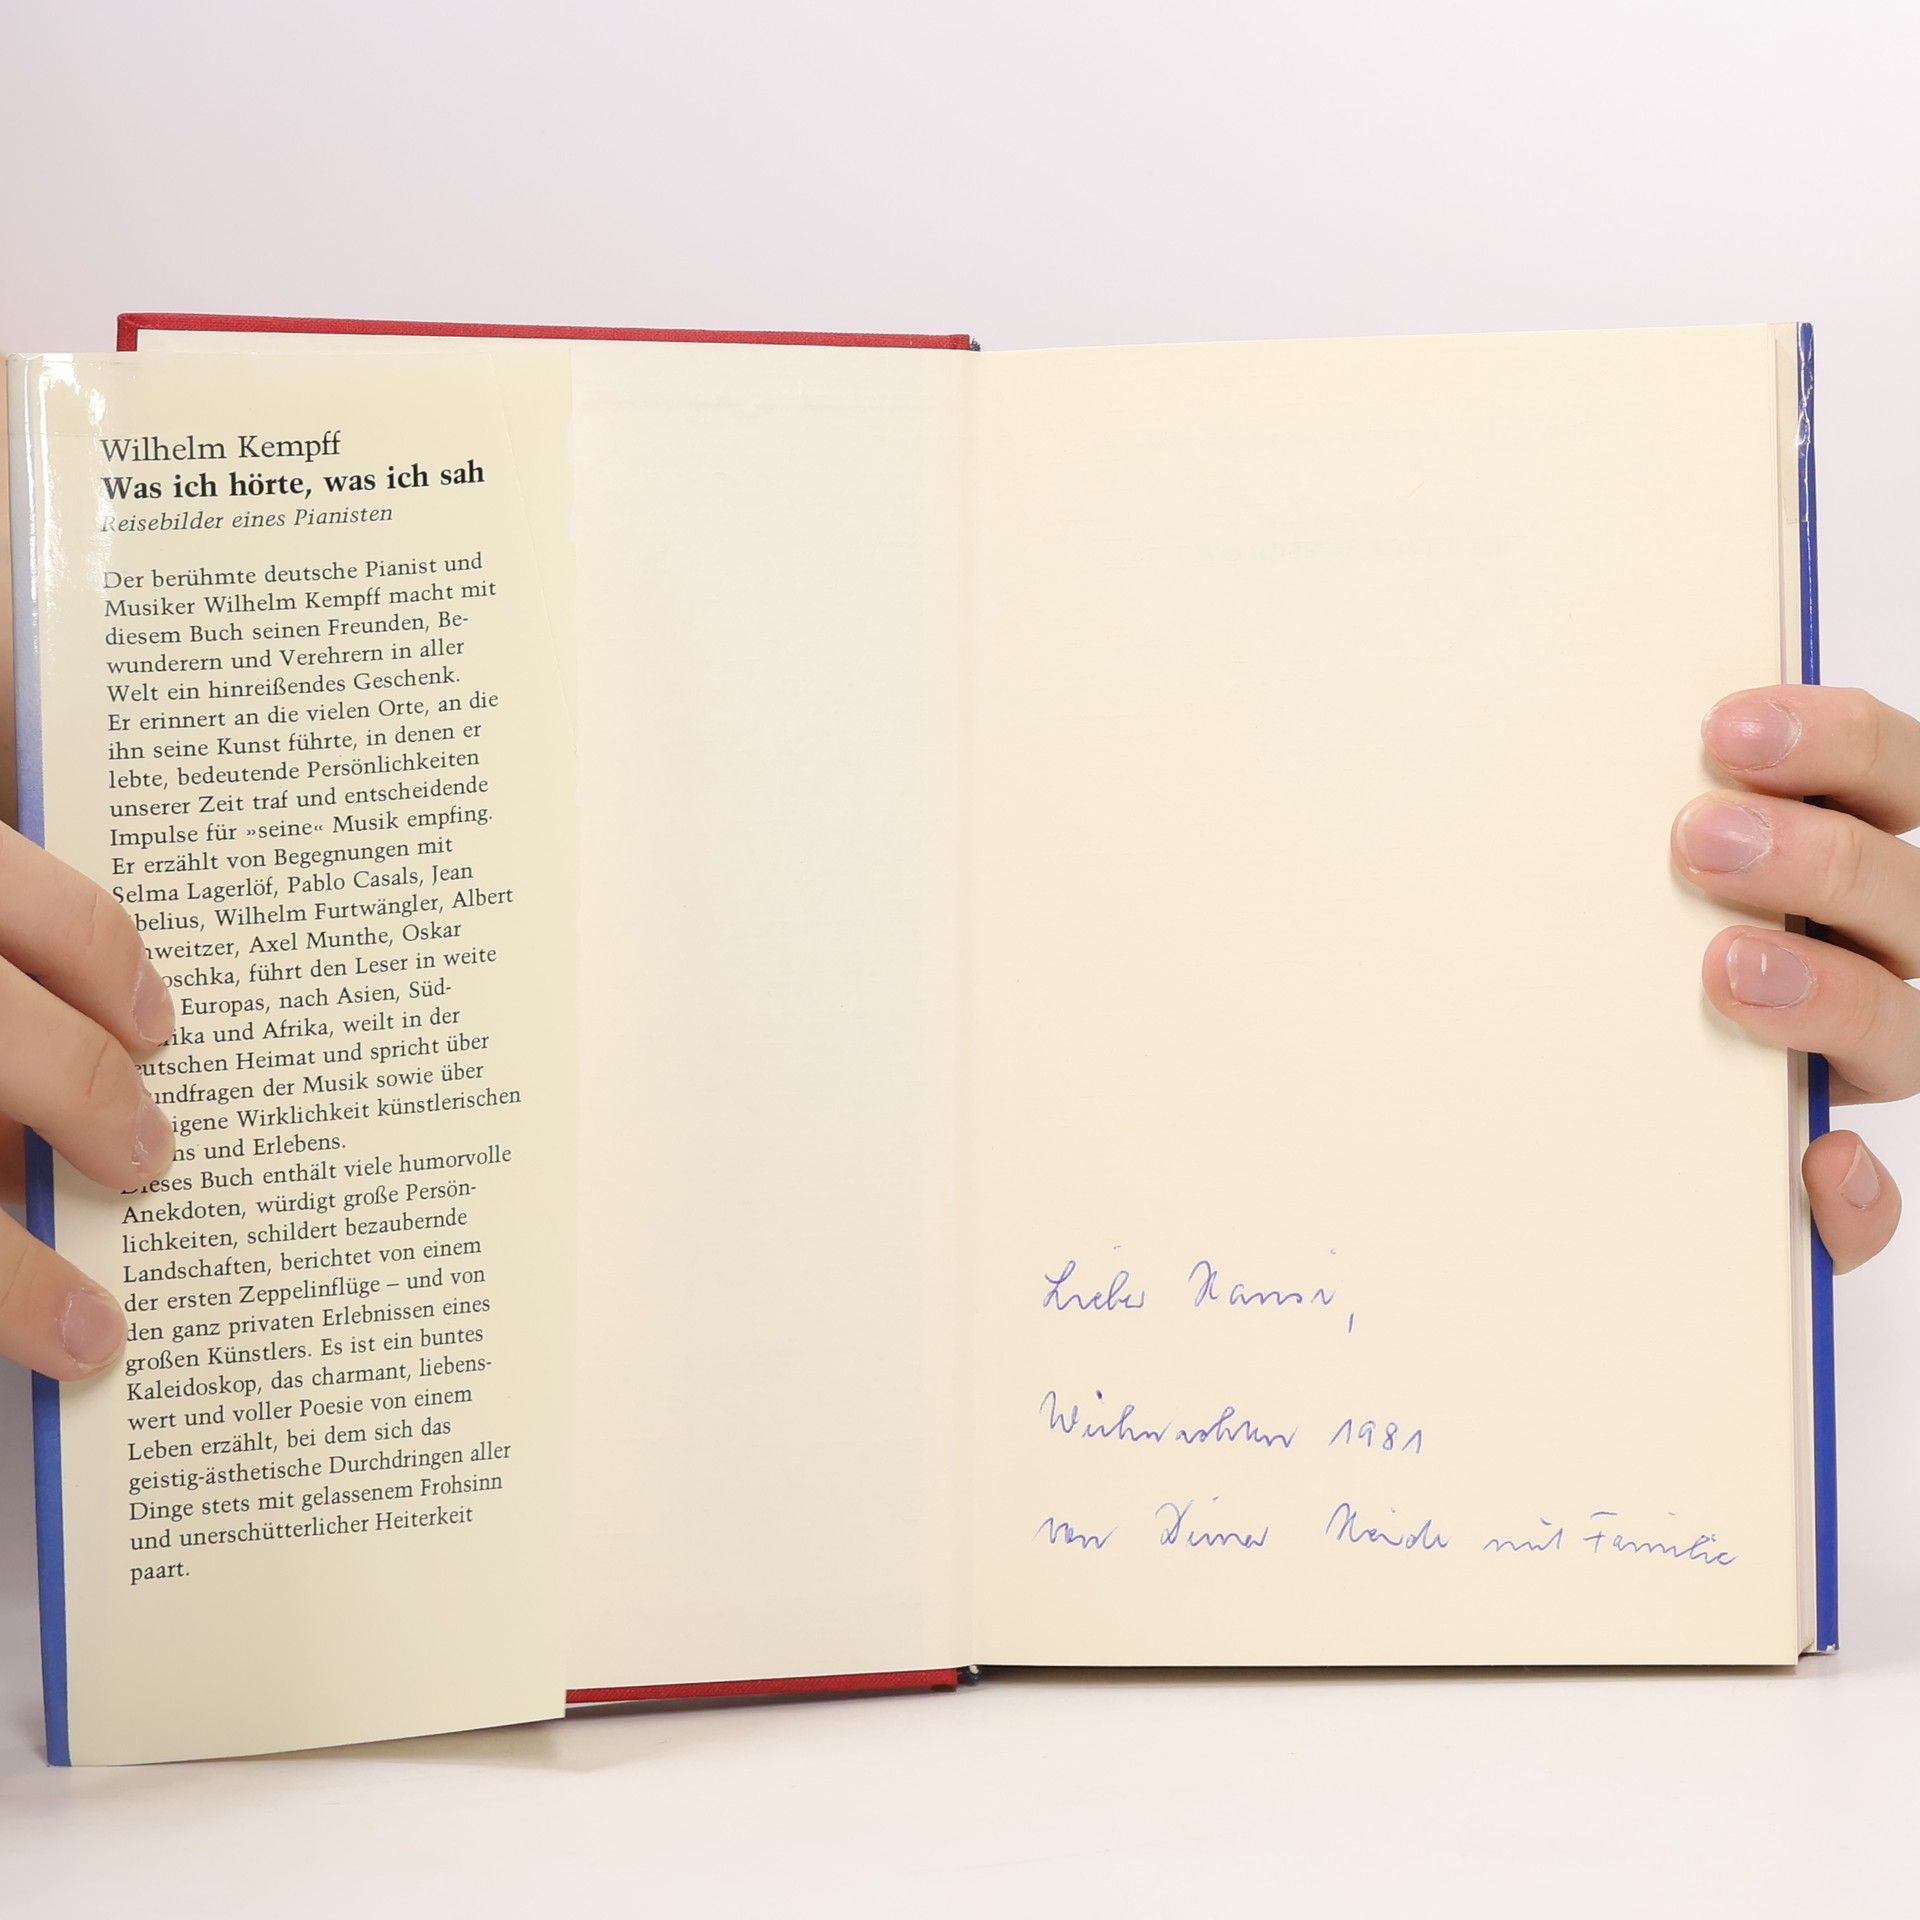 Wilhelm Kempff
Was ich hörte, was ich sah
Reisebilder eines Pianisten
Der berühmte deutsche Pianist und
Musiker Wilhelm Kempff macht mit
diesem Buch seinen Freunden, Be-
wunderern und Verehrern in aller
Welt ein hinreißendes Geschenk.
Er erinnert an die vielen Orte, an die
ihn seine Kunst führte, in denen er
lebte, bedeutende Persönlichkeiten
unserer Zeit traf und entscheidende
Impulse für »seine« Musik empfing.
Er erzählt von Begegnungen mit
Selma Lagerlöf, Pablo Casals, Jean
belius, Wilhelm Furtwängler, Albert
weitzer, Axel Munthe, Oskar
oschka, führt den Leser in weite
Europas, nach Asien, Süd-
ika und Afrika, weilt in der
eutschen Heimat und spricht über
undfragen der Musik sowie über
igene Wirklichkeit künstlerischen
ns und Erlebens.
Dieses Buch enthält viele humorvolle
Anekdoten, würdigt große Persön-
lichkeiten, schildert bezaubernde
Landschaften, berichtet von einem
der ersten Zeppelinflüge – und von
den ganz privaten Erlebnissen eines
großen Künstlers. Es ist ein buntes
Kaleidoskop, das charmant, liebens-
wert und voller Poesie von einem
Leben erzählt, bei dem sich das
geistig-ästhetische Durchdringen aller
Dinge stets mit gelassenem Frohsinn
und unerschütterlicher Heiterkeit
paart.
Lieber Hansi,
Weihnachten 1981
von Deiner Heide mit Familie